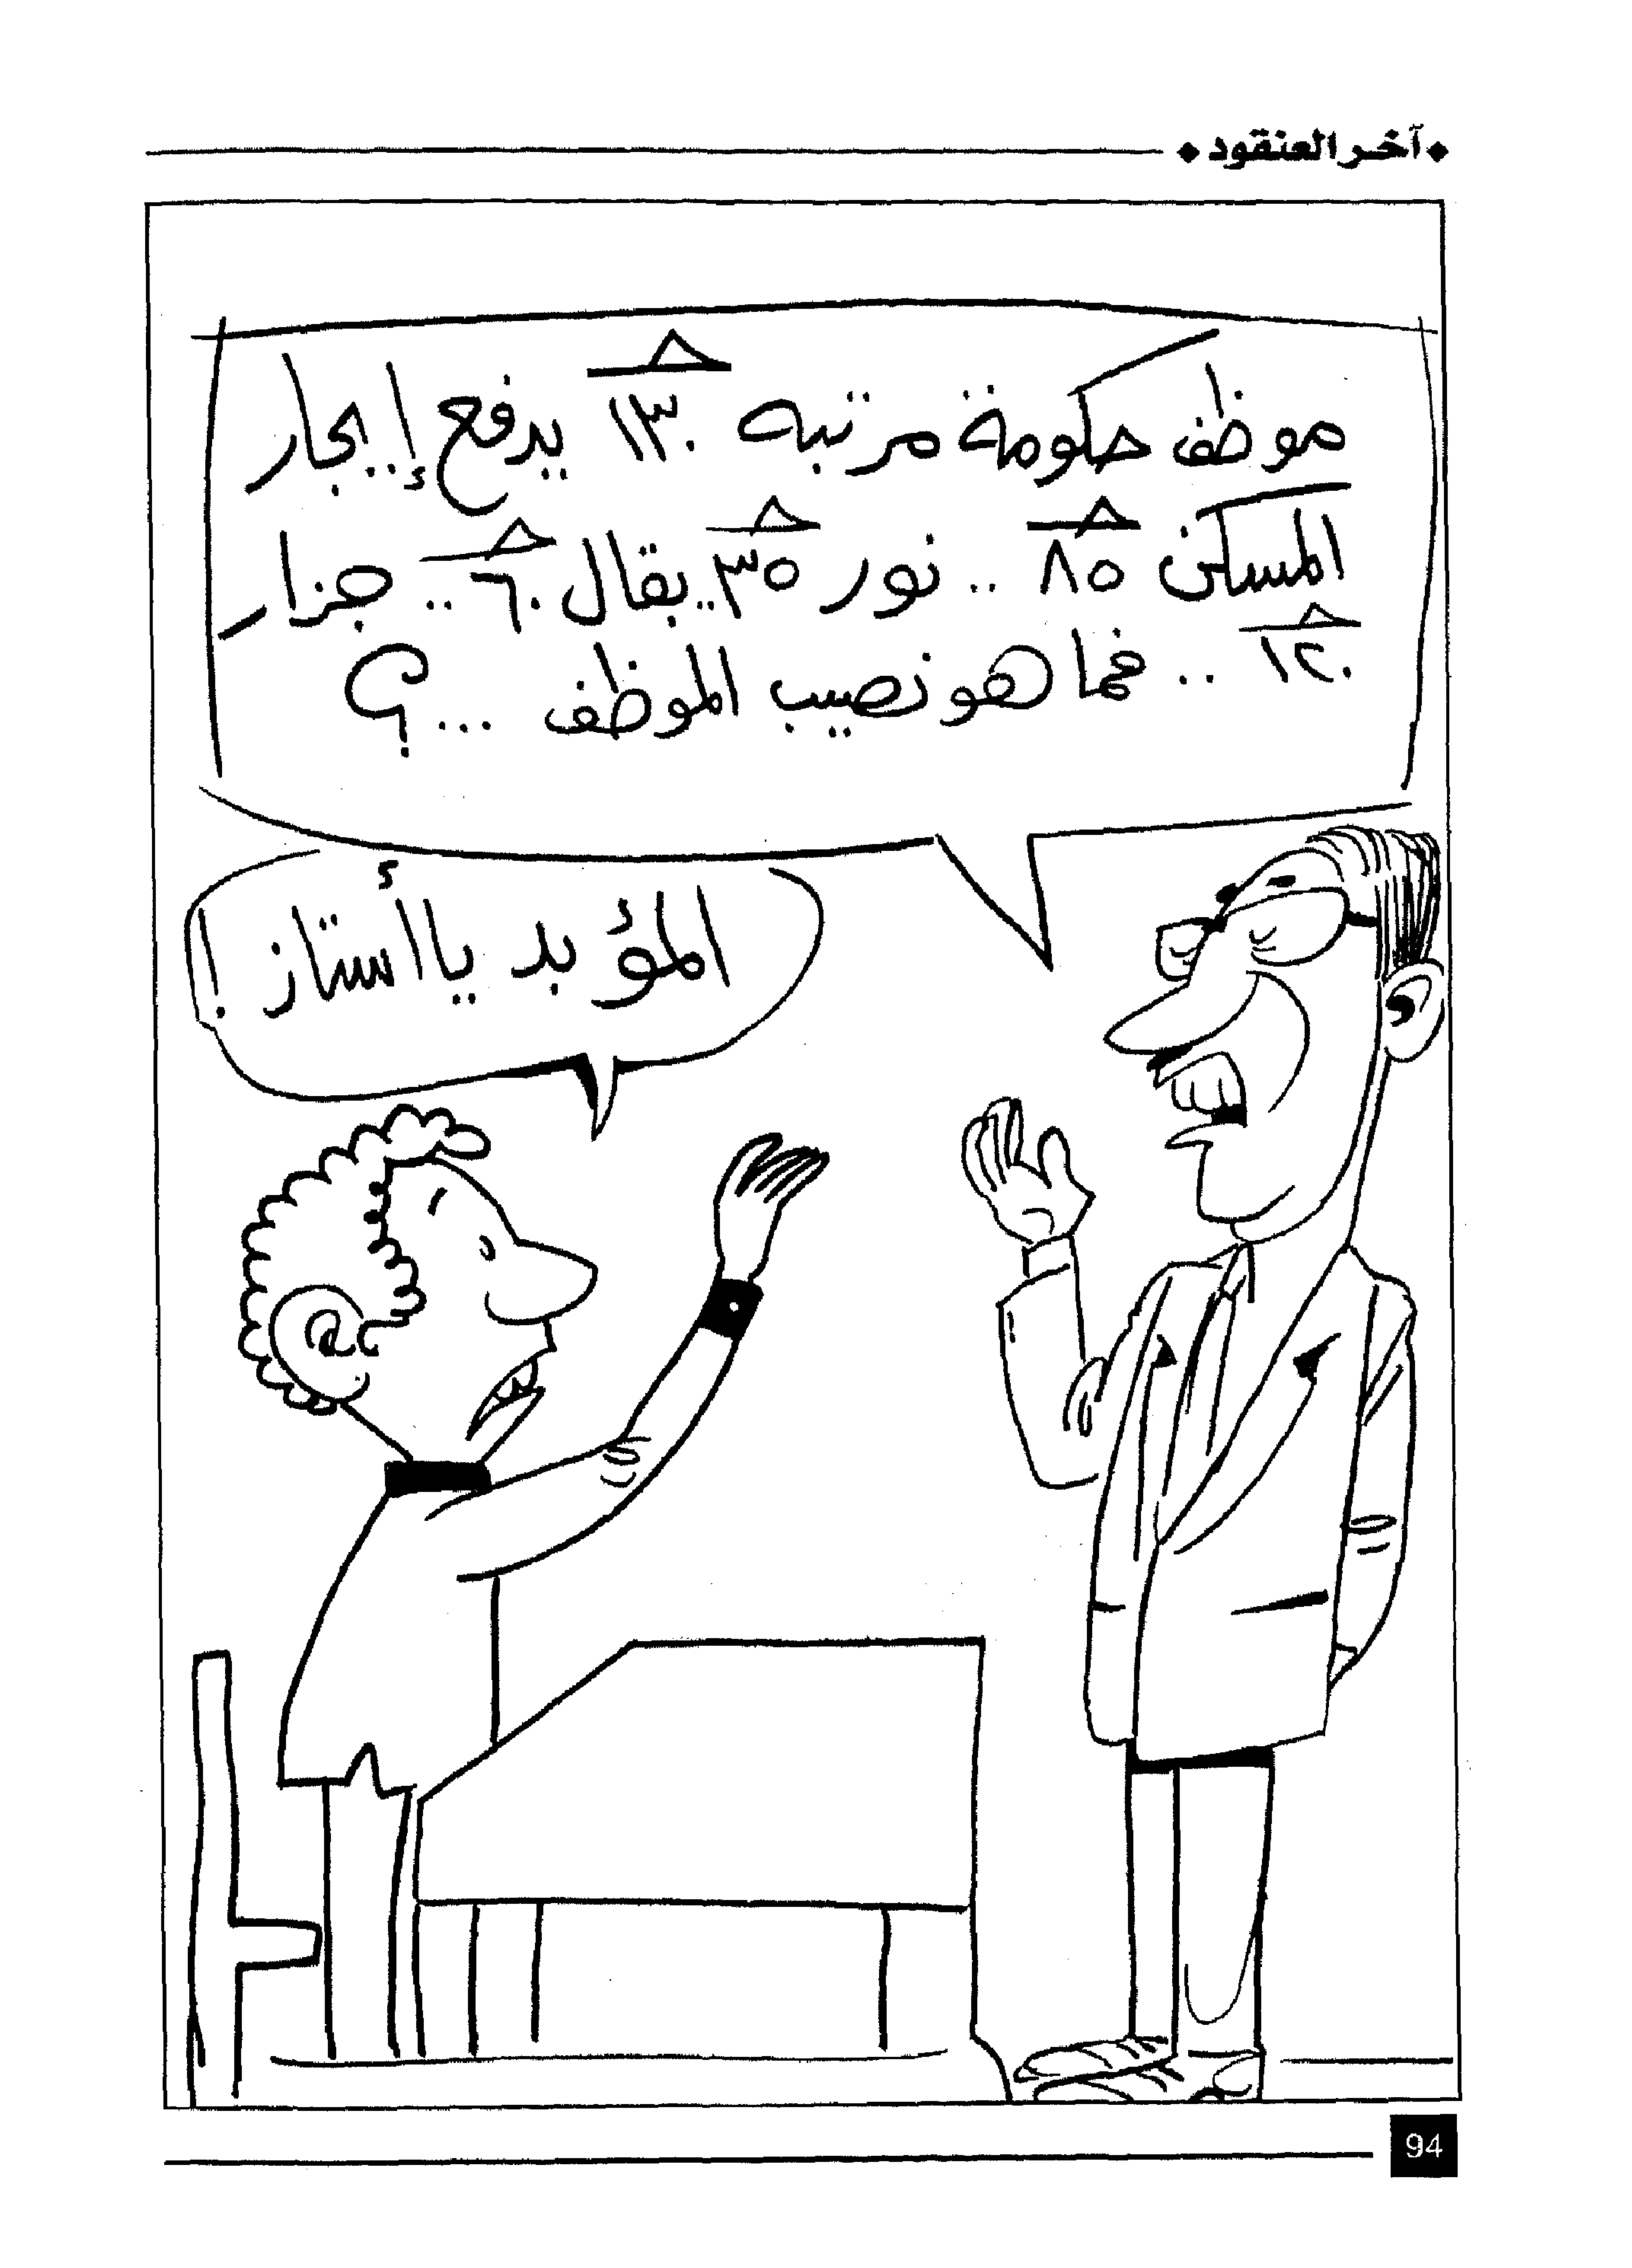 آخر العنقود
موظف حكومة مرتبه ١٣٠ يدفع إيجار
المسكن ٨٥ .. نور ٣٥ .. بقال ٦٠ .. جزار
١٢٠ .. فما هو نصيب الموظف ...؟
المؤبد يا أستاز !
94